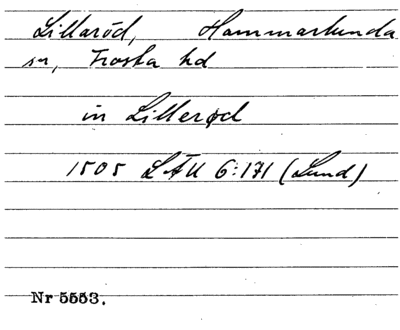 Lillaröd, Hammarlunda
sn, Frosta hd
in Lillerød
1505 LÄU 6:171 (Lund)
Nr 5553.